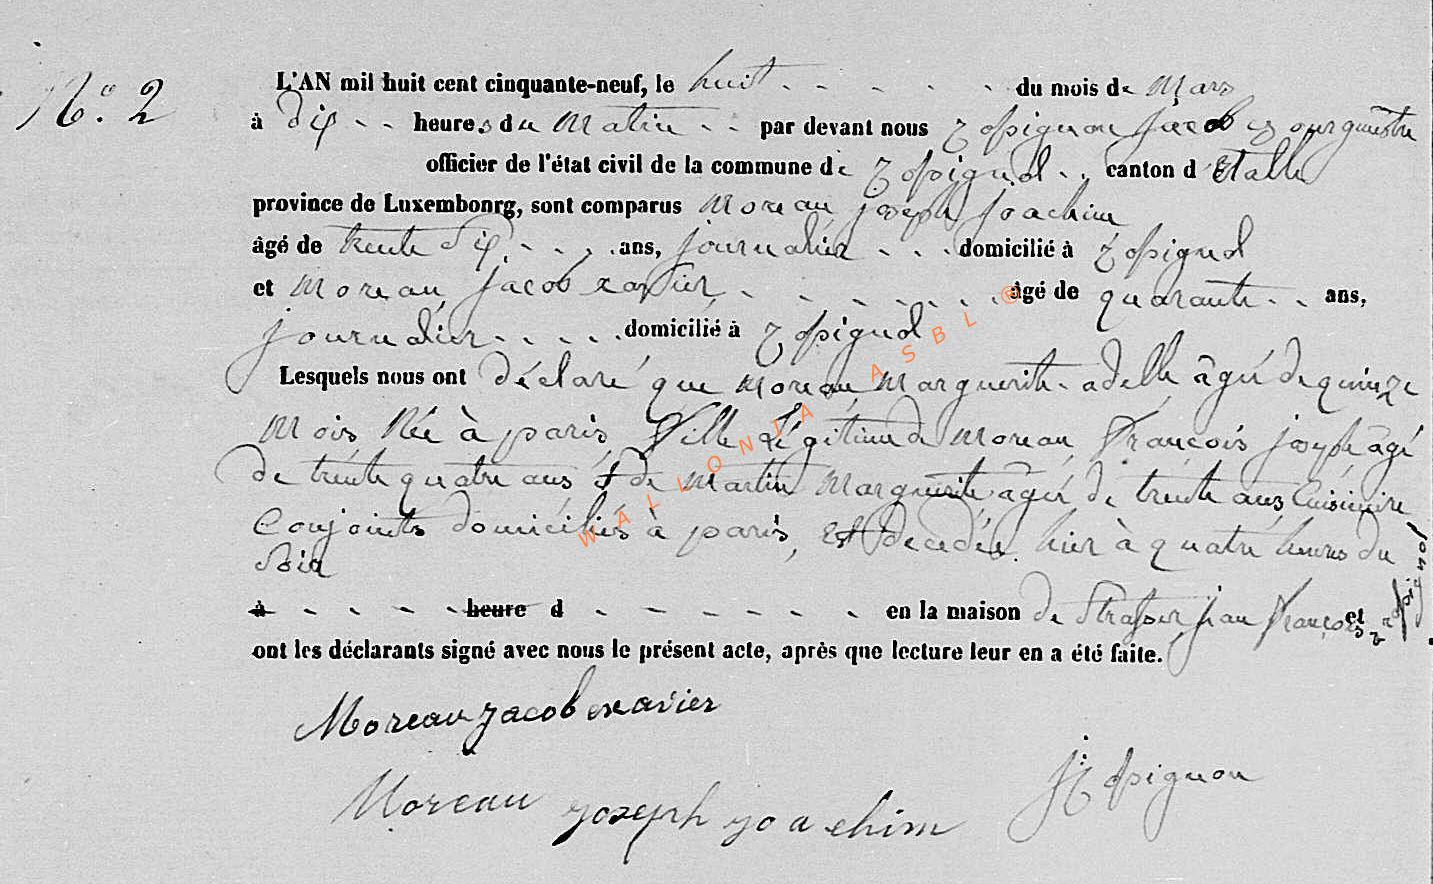 N° 2
L'AN mil huit cent cinquante-neuf, le huit - - - - - du mois de Mars
à dix - - heures du Matin - - par devant nous Jacob
officier de l'état civil de la commune de - - canton d'Etalle
province de Luxembonrg, sont comparus Moreau joseph joachim
âgé de trente dix - - - - ans, journalier - - - domicilié à
et Moreau Jacob xavier - - - - - - - âgé de quarante - - ans,
journalier - - - - - domicilié à
Lesquels nous ont déclaré que Moreau Marguerite adelle âgée de quinze
Mois Née à paris, fille Légitime de Moreau François joseph âgé
de trente quatre ans et de Martin Marguerite âgée de trente ans Cuisinière
Conjoints domiciliés à paris, Est décédée hier à quatre heures du
Soir
à - - - - heure d - - - - - - en la maison de Strasser jean françois et
ont les déclarants signé avec nous le présent acte, après que lecture leur en a été faite.
Moreau Jacob xavier
Moreau yoseph yoachim
WALLONIA ASBL ©